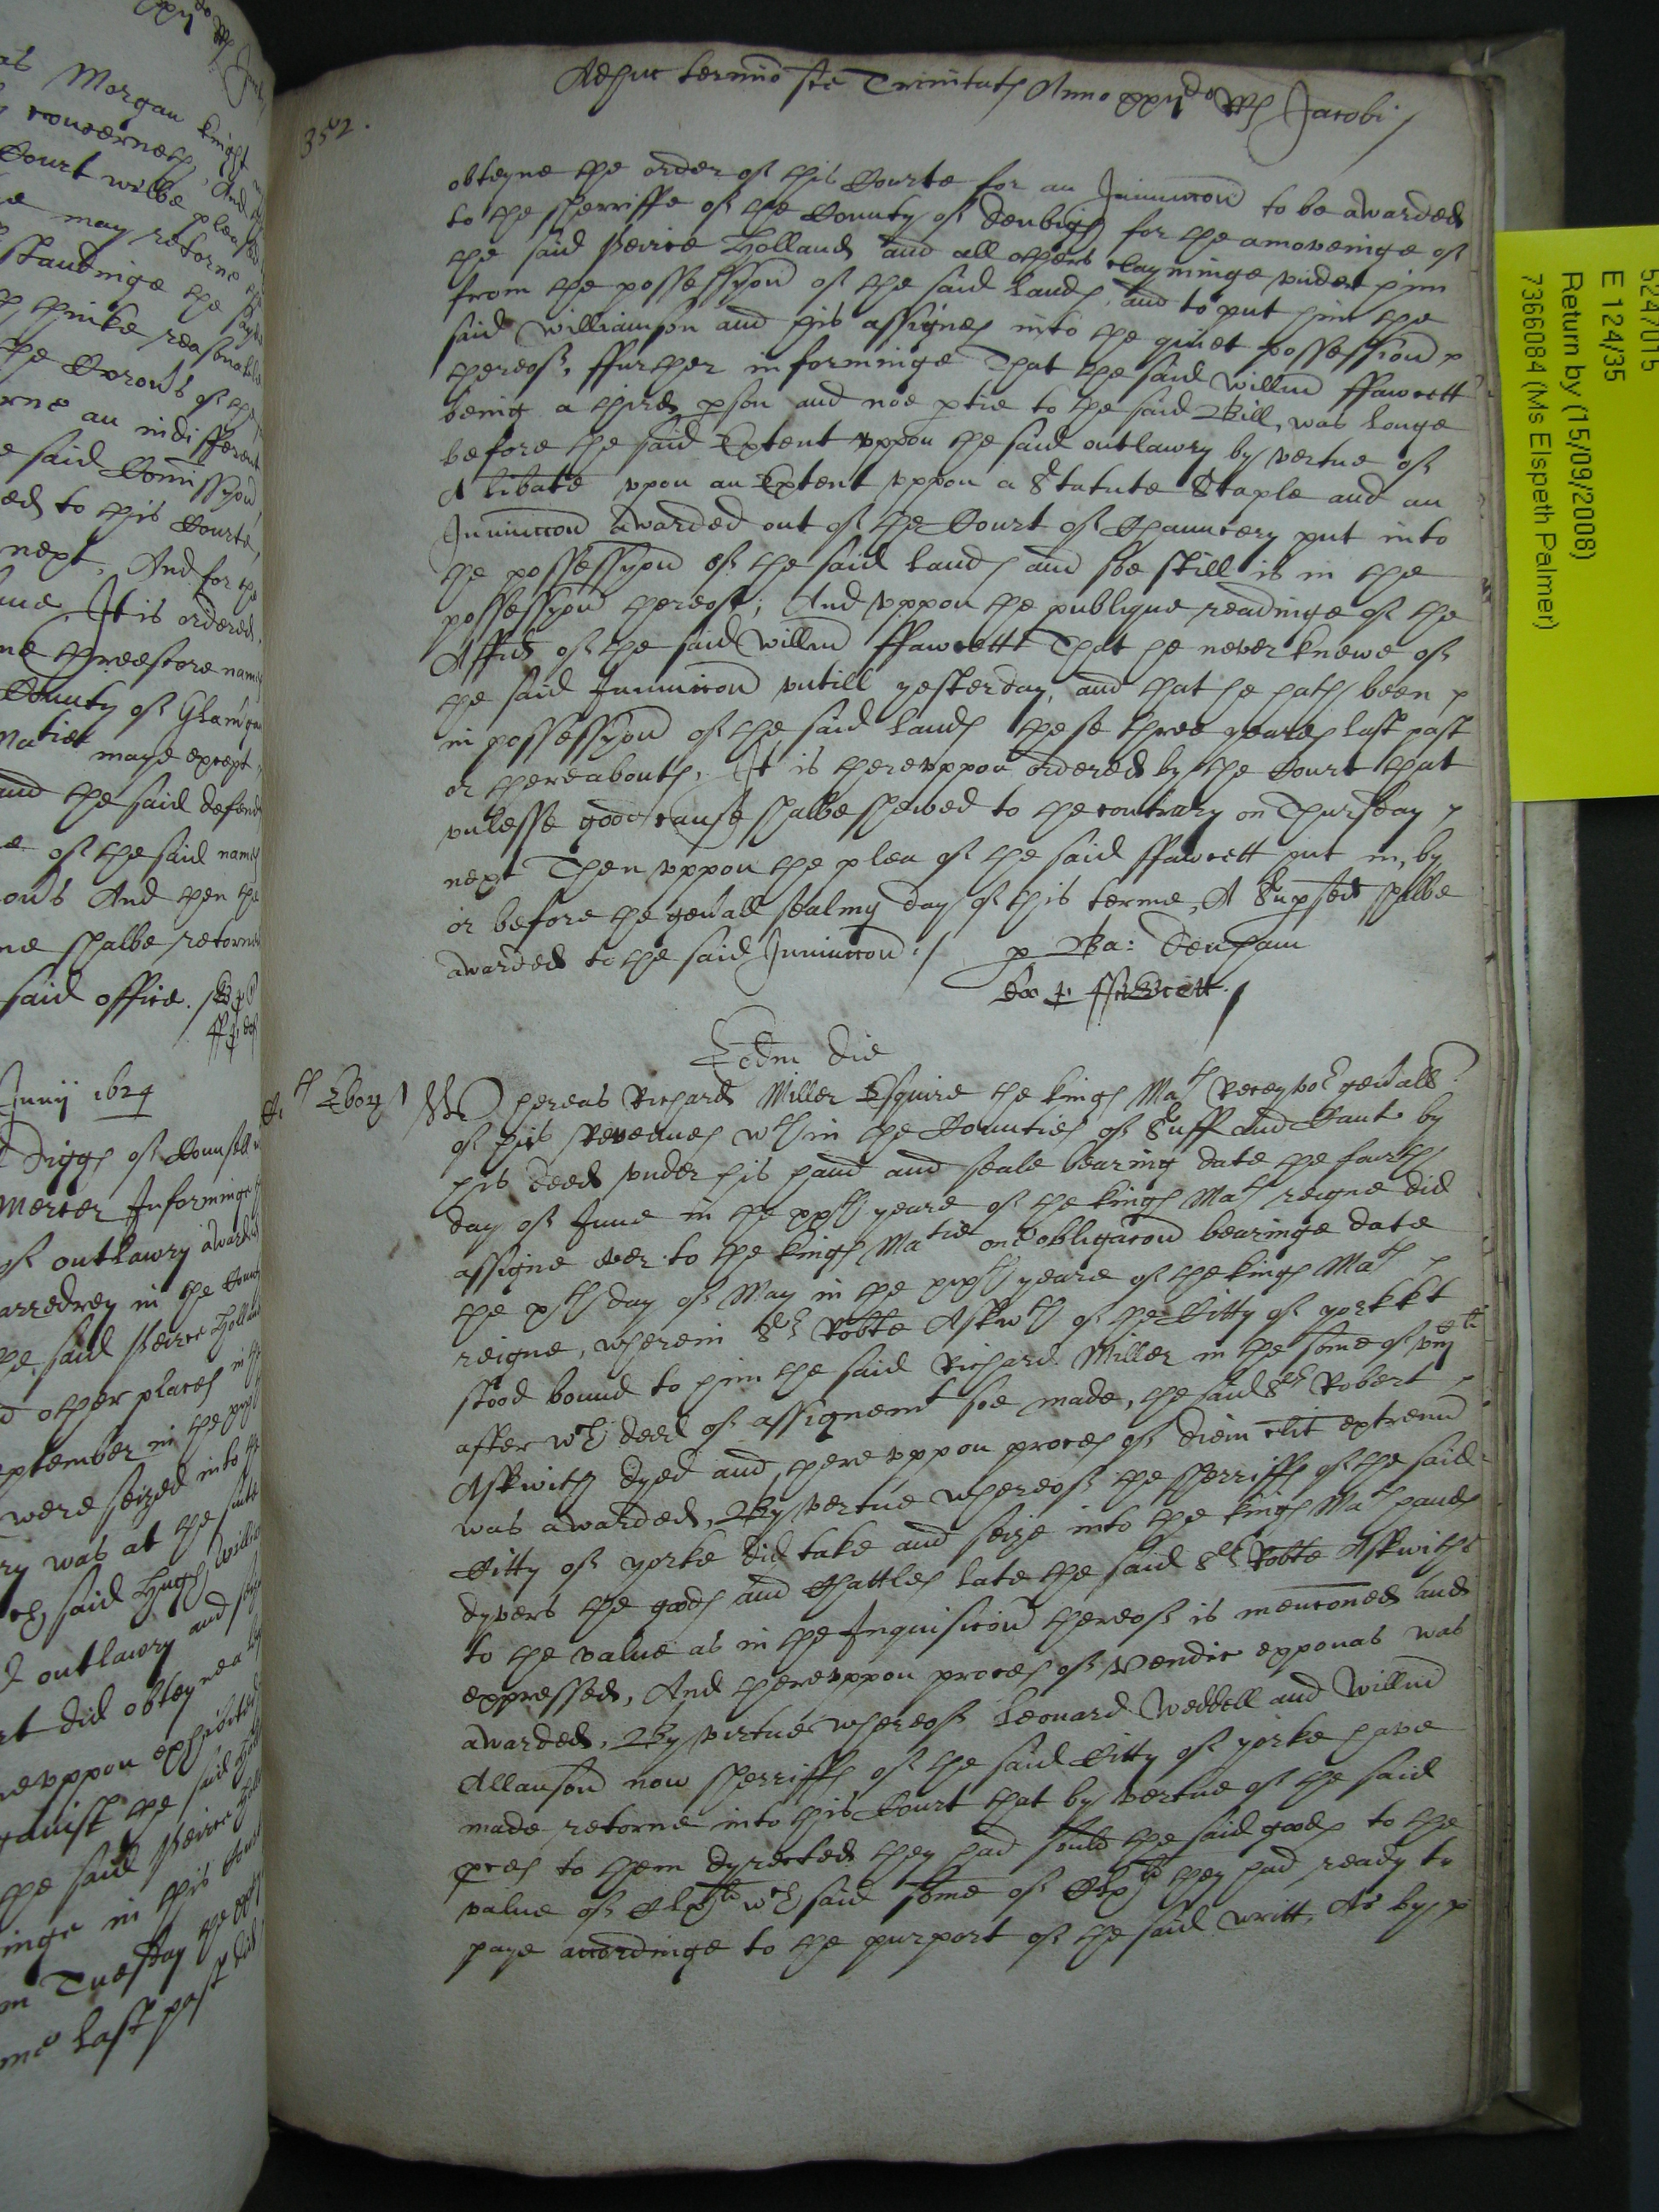 Adhuc termino sce Trinitatis Anno xxijdo Rs Jacobi
352.
obteyne the order of this Courte for an Iniunccon to be awarded
to the sherriffe of the County of Denbigh for the amoveinge of
the said Peirce Holland and all others claymeinge under him
from the possessyon of the said lands, and to put him the
said Williamson and his assignes into the quiet possession
thereof, ffurther informinge That the said Willm ffawcett
being a third pson and noe ptie to the said Bill, was longe
before the said Extent uppon the said outlawry by vertue of
A libate upon an Extent uppon a Statute Staple and an
Iniunccon awarded out of the Court of Chauncery put into
the possessyon of the said lands and soe still is in the
possessyon thereof; And uppon the publique readinge of the
Affid of the said Willm ffawcett That he never knewe of
the said Iniunccon untill yesterday, and that he hath been
in possessyon of the said lands these three yeares last past
or thereabouts, It is thereuppon ordered by the Court that
unlesse good cause shalbe shewed to the contrary on Thursday
next Then uppon the plea of the said ffawcett put in, by
or before the genall sealing day of this terme, A Supsed shalbe
awarded to the said Iniunccon:/ p Ba: Denham
Eodm die
Ebor
Whereas Richard Miller Esquire the kings Mats Receyvor genall
of his Revenues wthin the Counties of Suff and Cant by
his deed under his hand and seale bearing date the fourth
day of June in the xxth yeare of the kings Mats reigne did
assigne over to the kings Matie one obligacon bearinge date
the xth day of May in the yeare of the kings Mats
reigne, wherein Sr Robte Askwth of the Citty of york kt
stood bound to him the said Richard Miller in the some of
after wch deed of assignemt soe made, the said Sr Robert
Askwith dyed and thereuppon proces of diem clit extremu
was awarded, By vertue whereof the sherriffs of the said
Citty of yorke did take and seize into the kings Mats hands
dyvers the goods and Chattles late the said Sr Robte Askwiths
to the value as in the Inquisicon thereof is menconed and
expressed, And thereuppon proces of Vendic exponas was
awarded, By virtue whereof Leonard Weddell and Willm
Allanson now sherriffs of the said Citty of yorke have
made retorne into this Court that by vertue of the said
pces to them dyrected they had sould the said goods to the
value of wch said some of they had ready to
paye accordinge to the purport of the said writt, As by
as Morgan knight
concerneth, And
Court wilbe pleased
may retorne
standinge the
thinke reasonable
an indifferent
said Comissyon
ed to this Courte,
next, And for the
It is ordered
threescore names
County of Glam
Maties maye except
and the said defend
of the said names
And then the
shalbe retorned
said office.
Junij 1624
Diggs of Counsell
Mercer Informinge
of outlawry awarded
in the County
the said Peirce Holland
other places in the
September in the
were seized into the
ry was at the sute
said Hugh Willia
outlawry and
did obteyne a
uppon exhibited
against the said
the said Peirce Holl
inge in this Court
Tuesday the
last past did
5247015
E 124/35
Return by (15/09/2008)
7366084 (Ms Elspeth Palmer)